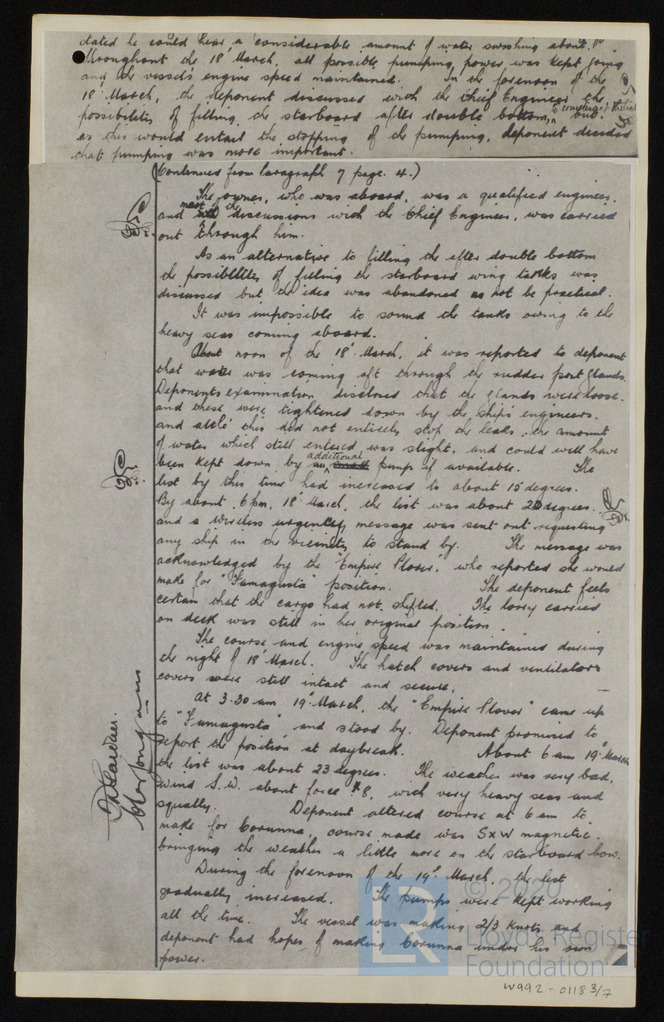 dated he could hear a considerable amount of water swishing about.
Throughout the 18' March, all possible pumping power was kept going
and the vessel's engine speed maintained. In the forenoon of the
18' March, the deponent discussed with the Chief Engineer the
possibilities of filling the starboard after double bottom, to counteract the list but
as this would entail the stopping of the pumping, deponent decided
that pumping was more important.
(Continued from paragraph 7 page 4.)
The owner, who was aboard, was a qualified engineer,
and most of the discussions with the Chief Engineer, was carried
out through him.
As an alternative to filling the after double bottom
the possibilities of filling the starboard wing tanks was
discussed but the idea was abandoned as not be practical.
It was impossible to sound the tanks owing to the
heavy seas coming aboard.
About noon of the 18' March, it was reported to deponent
that water was coming aft through the rudder post glands.
Deponents examination disclosed that the glands were loose.
and these were tightened down by the ship's engineers.
and altho' this did not entirely stop the leaks, the amount
of water which still entered was slight, and could well have
been kept down by an additional small pump if available. The
list by this time had increased to about 15 degrees.
By about 6pm, 18' March, the list was about 20 degrees.
and a wireless urgency message was sent out requesting
any ship in the vicinity to stand by. The message was
acknowledged by the "Empire Plover", who reported she would
make for "Famagusta" position. The deponent feels
certain that the cargo had not shifted. The lorry carried
on deck was still in her original position.
The course and engine speed was maintained during
the night of 18' March. The hatch covers and ventilators
covers were still intact and secure.
At 3-30 am 19' March, the "Empire Plover" came up
to "Famagusta" and stood by. Deponent promised to
report the position at daybreak. About 6 am 19' March
the list was about 23 degrees. The weather was very bad,
wind S.W. about force 8, with very heavy seas and
squally. Deponent altered course at 6 am to
make for Corunna, course made was SxW magnetic.
bringing the weather a little more on the starboard bow.
During the forenoon of the 19' March, the list
gradually increased. The pumps were kept working
all the time. The vessel was making 2/3 knots and
deponent had hopes of making Corunna under his own
power.
© 2020
LR
Lloyd's Register
Foundation
W992-0118 3/7